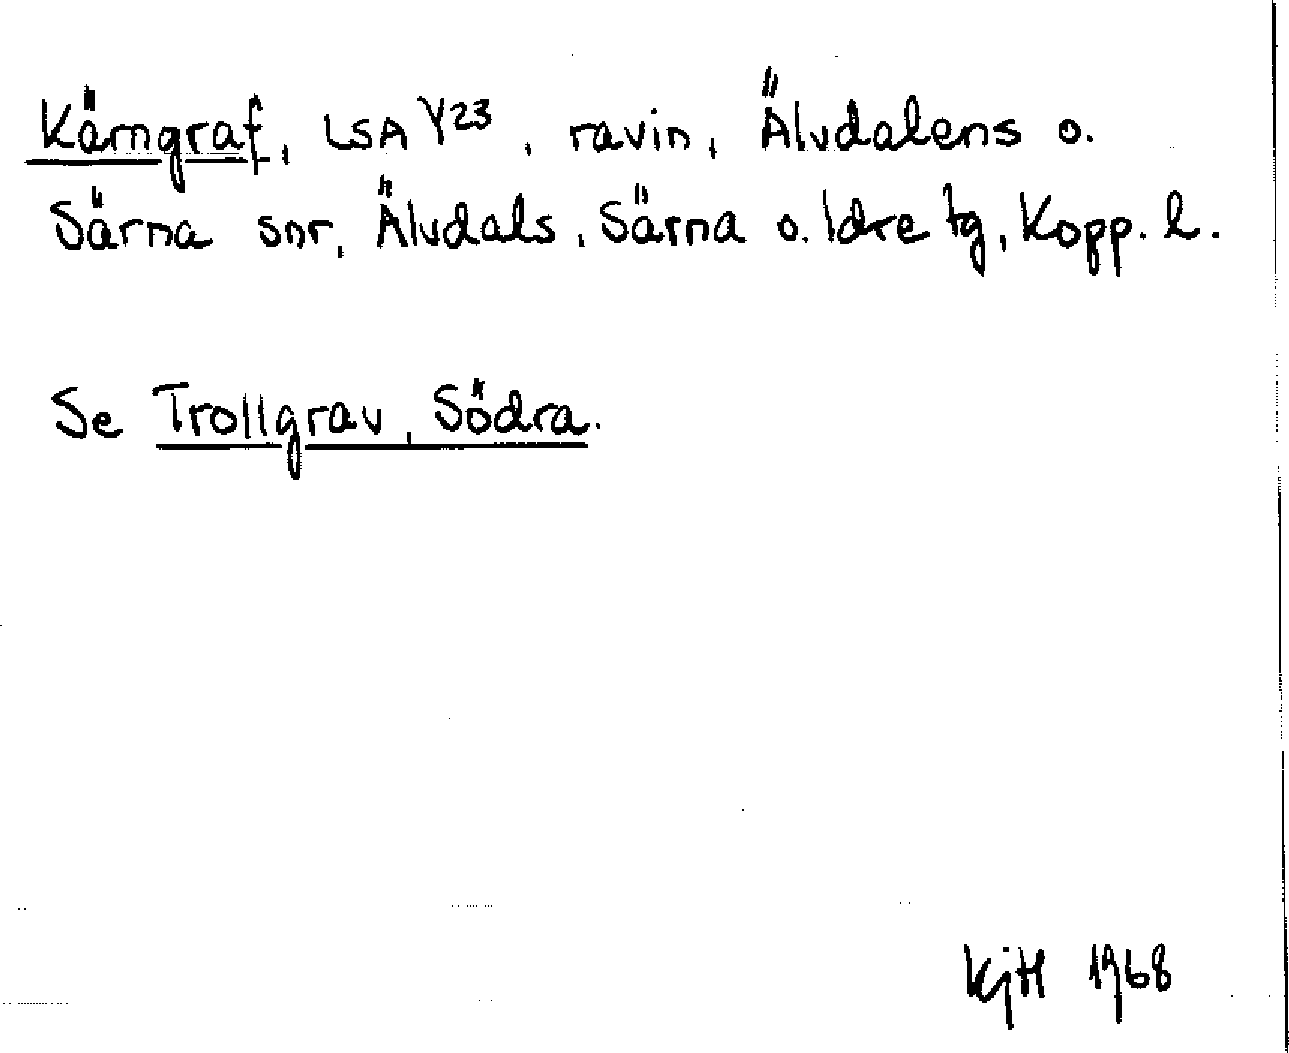 Kärngraf, LSA Y23, ravin, Älvdalens o.
Särna snr, Älvdals, Särna o. Idre tg, Kopp. l.
Se Trollgrav, Södra.
KjH 1968